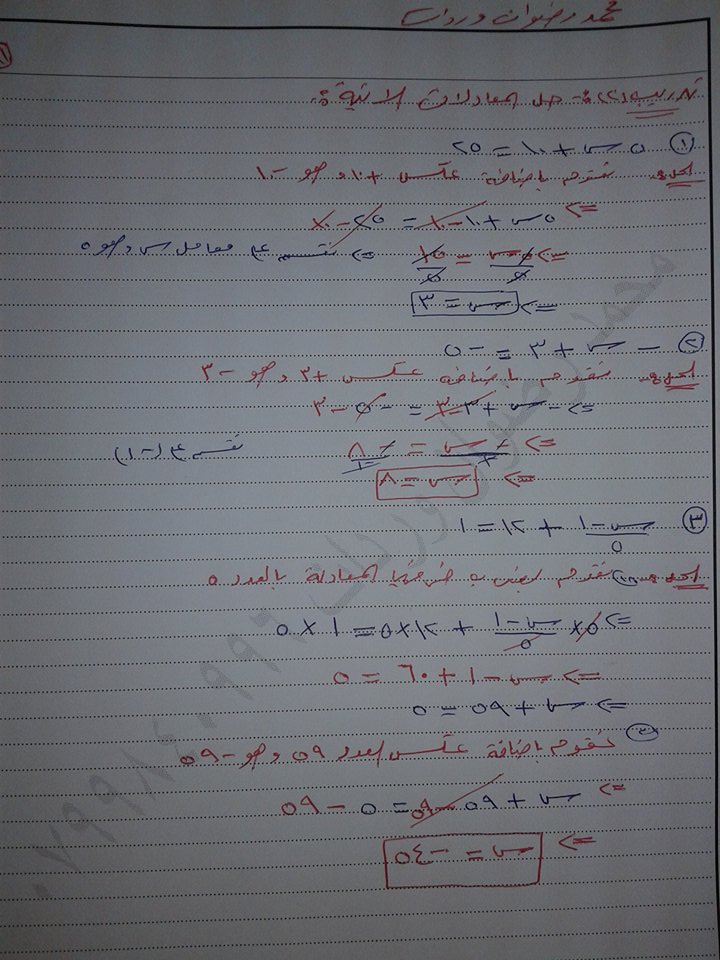 محمد رضوان وردات
تدريب (٢): حل المعادلات الآتية:
① ٥س + ١٠ = ٢٥
الحل: نقوم باضافة عكس +١٠ وهو -١٠
<= ٥س + ١٠ - ١٠ = ٢٥ - ١٠
<= ٥س/٥ = ١٥/٥ <= نقسم على معامل س وهو ٥
<= س = ٣
② - س + ٣ = -٥
الحل: نقوم باضافة عكس +٣ وهو -٣
<= - س + ٣ - ٣ = -٥ - ٣
<= -س/-١ = -٨/-١ نقسم على (-١)
<= س = ٨
③ (س - ١)/٥ + ١٢ = ١
الحل: ① نقوم بضرب طرفي المعادلة بالعدد ٥
<= ٥ × (س - ١)/٥ + ١٢ × ٥ = ١ × ٥
<= س - ١ + ٦٠ = ٥
<= س + ٥٩ = ٥
② نقوم باضافة عكس العدد ٥٩ وهو -٥٩
<= س + ٥٩ - ٥٩ = ٥ - ٥٩
<= س = -٥٤
محمد رضوان وردات